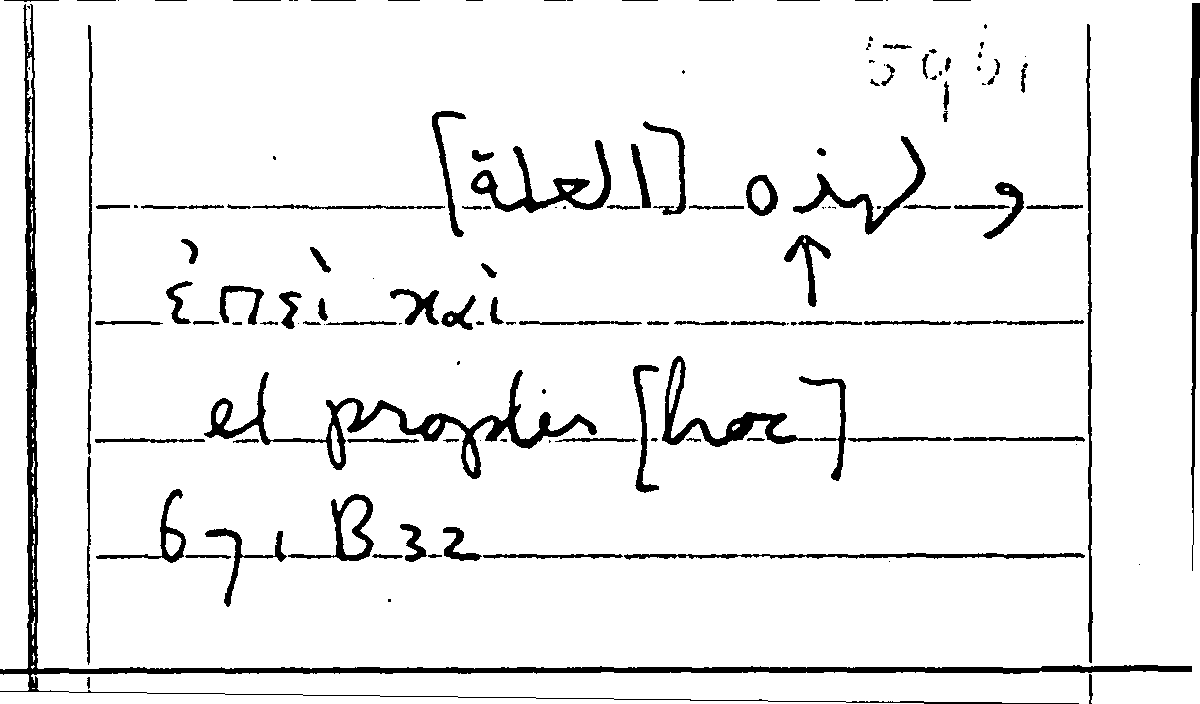 59b1
ولهذه [العلة]
ἐπεὶ καὶ
et propter [hoc]
671 B 32